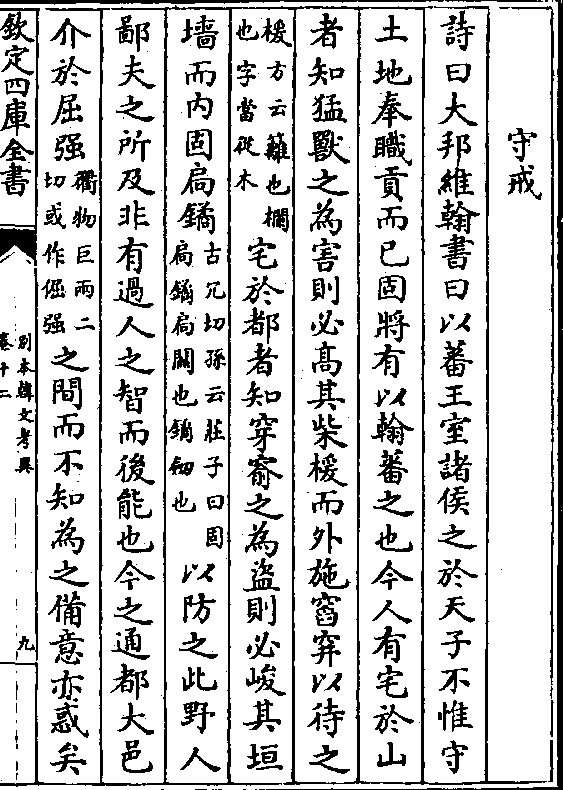 守戒
詩曰大邦維翰書曰以蕃王室諸侯之於天子不惟守
土地奉職貢而已固將有以翰蕃之也今人有宅於山
者知猛獸之為害則必高其柴楥而外施窞穽以待之
楥方云籬也欄也字當從木宅於都者知穿窬之為盜則必峻其垣
墻而内固扃鐍古冗切孫云莊子曰固扃鐍扃關也鐍鈕也以防之此野人
鄙夫之所及非有過人之智而後能也今之通都大邑
介於屈强衢物巨兩二切或作倔强之間而不知為之備意亦惑矣
欽定四庫全書
別本韓文考異
卷十二
九